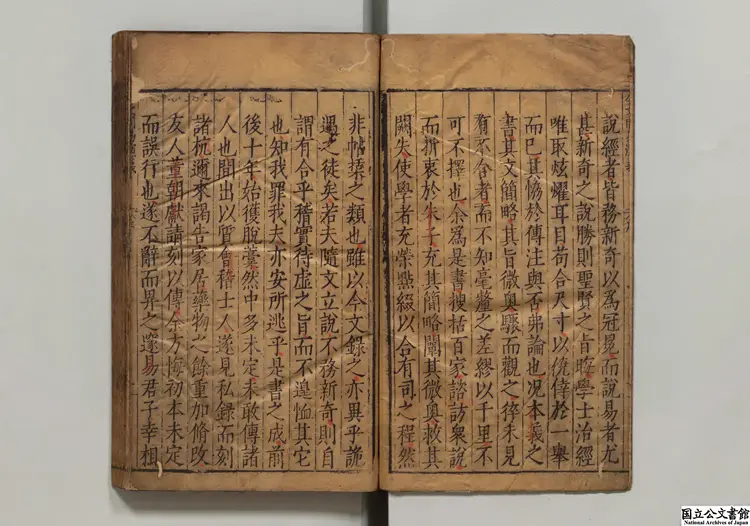 說經者皆務新奇以爲冠冕而說易者尤
甚新奇之說勝則聖賢之旨晦學士治經
唯取炫燿耳目苟合尺寸以僥倖於一舉
而已其恊於傳注與否弗論也况本義之
書其文簡略其旨微奥驟而觀之猝未見
有不合者而不知毫釐之差繆以千里不
可不擇也余爲是書搜括百家諮訪衆說
而折衷於朱子充其簡略闡其微奥救其
闕失使學者充榮點綴以合有司之程然
非帖栝之類也雖以今文錄之亦異乎詭
遇之徒矣若夫隨文立說不務新奇則自
謂有合乎稽實待虚之旨而不遑恤其它
也知我罪我夫亦安所逃乎是書之成前
後十年始獲脫藁然中多未定未敢傳諸
人也間出以質會稽士人遂見私錄而刻
諸杭邇來謁告家居藥物之餘重加脩改
友人董朝獻請刻以傳余方悔初本未定
而誤行也遂不辭而畀之遼易君子幸相
国立公文書館
National Archives of Japan